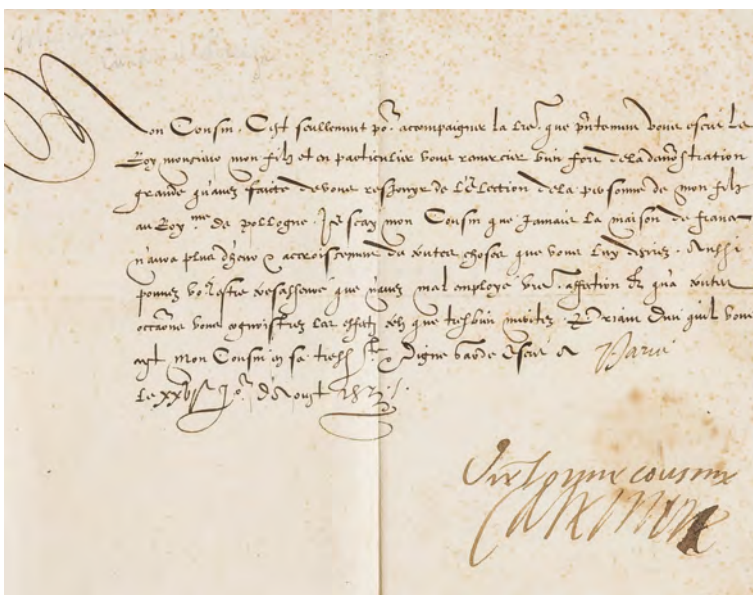 Mon Cousin. C'est seullement po.r accompaigner la l're que p'ntement vous escrit le
Roy monsieur mon filz et en particulier vous remercier bien fort de la demo'stration
grande qu'avez faicte de vous resjouyr de l'eslection de la personne de mon filz
au Roy.me de pollogne. Je scay mon Cousin que jamais la maison de france
n'aura plus d'heur & accroissement de toutes choses que vous luy desirez. Aussi
pouvez vo.s estre asseuré que n'avez mal employé v're affection et qu'a toutes
occ'ons vous cognoistrez les effectz tels que tresbien meritez. Priant Dieu qu'il vous
ayt mon Cousin en sa tress.te & digne garde Escrit a Paris
le xxvj.e jo.r d'Aoust 1573 /.
V're bonne cousine
Caterine